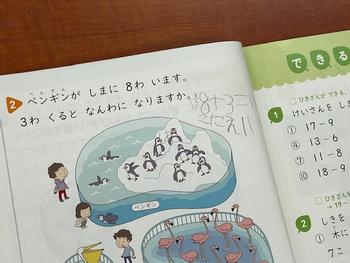 2
ペンギンが しまに 8わ います。
3わ くると なんわに なりますか。
8+3=11
こたえ11
ペンギン
できる
ひきざんが できる。
1
けいさんを し
① 17−9
④ 13−6
⑦ 11−8
⑩ 18−9
ひきざん
→19〜
2
しきを
① 木に
7こ